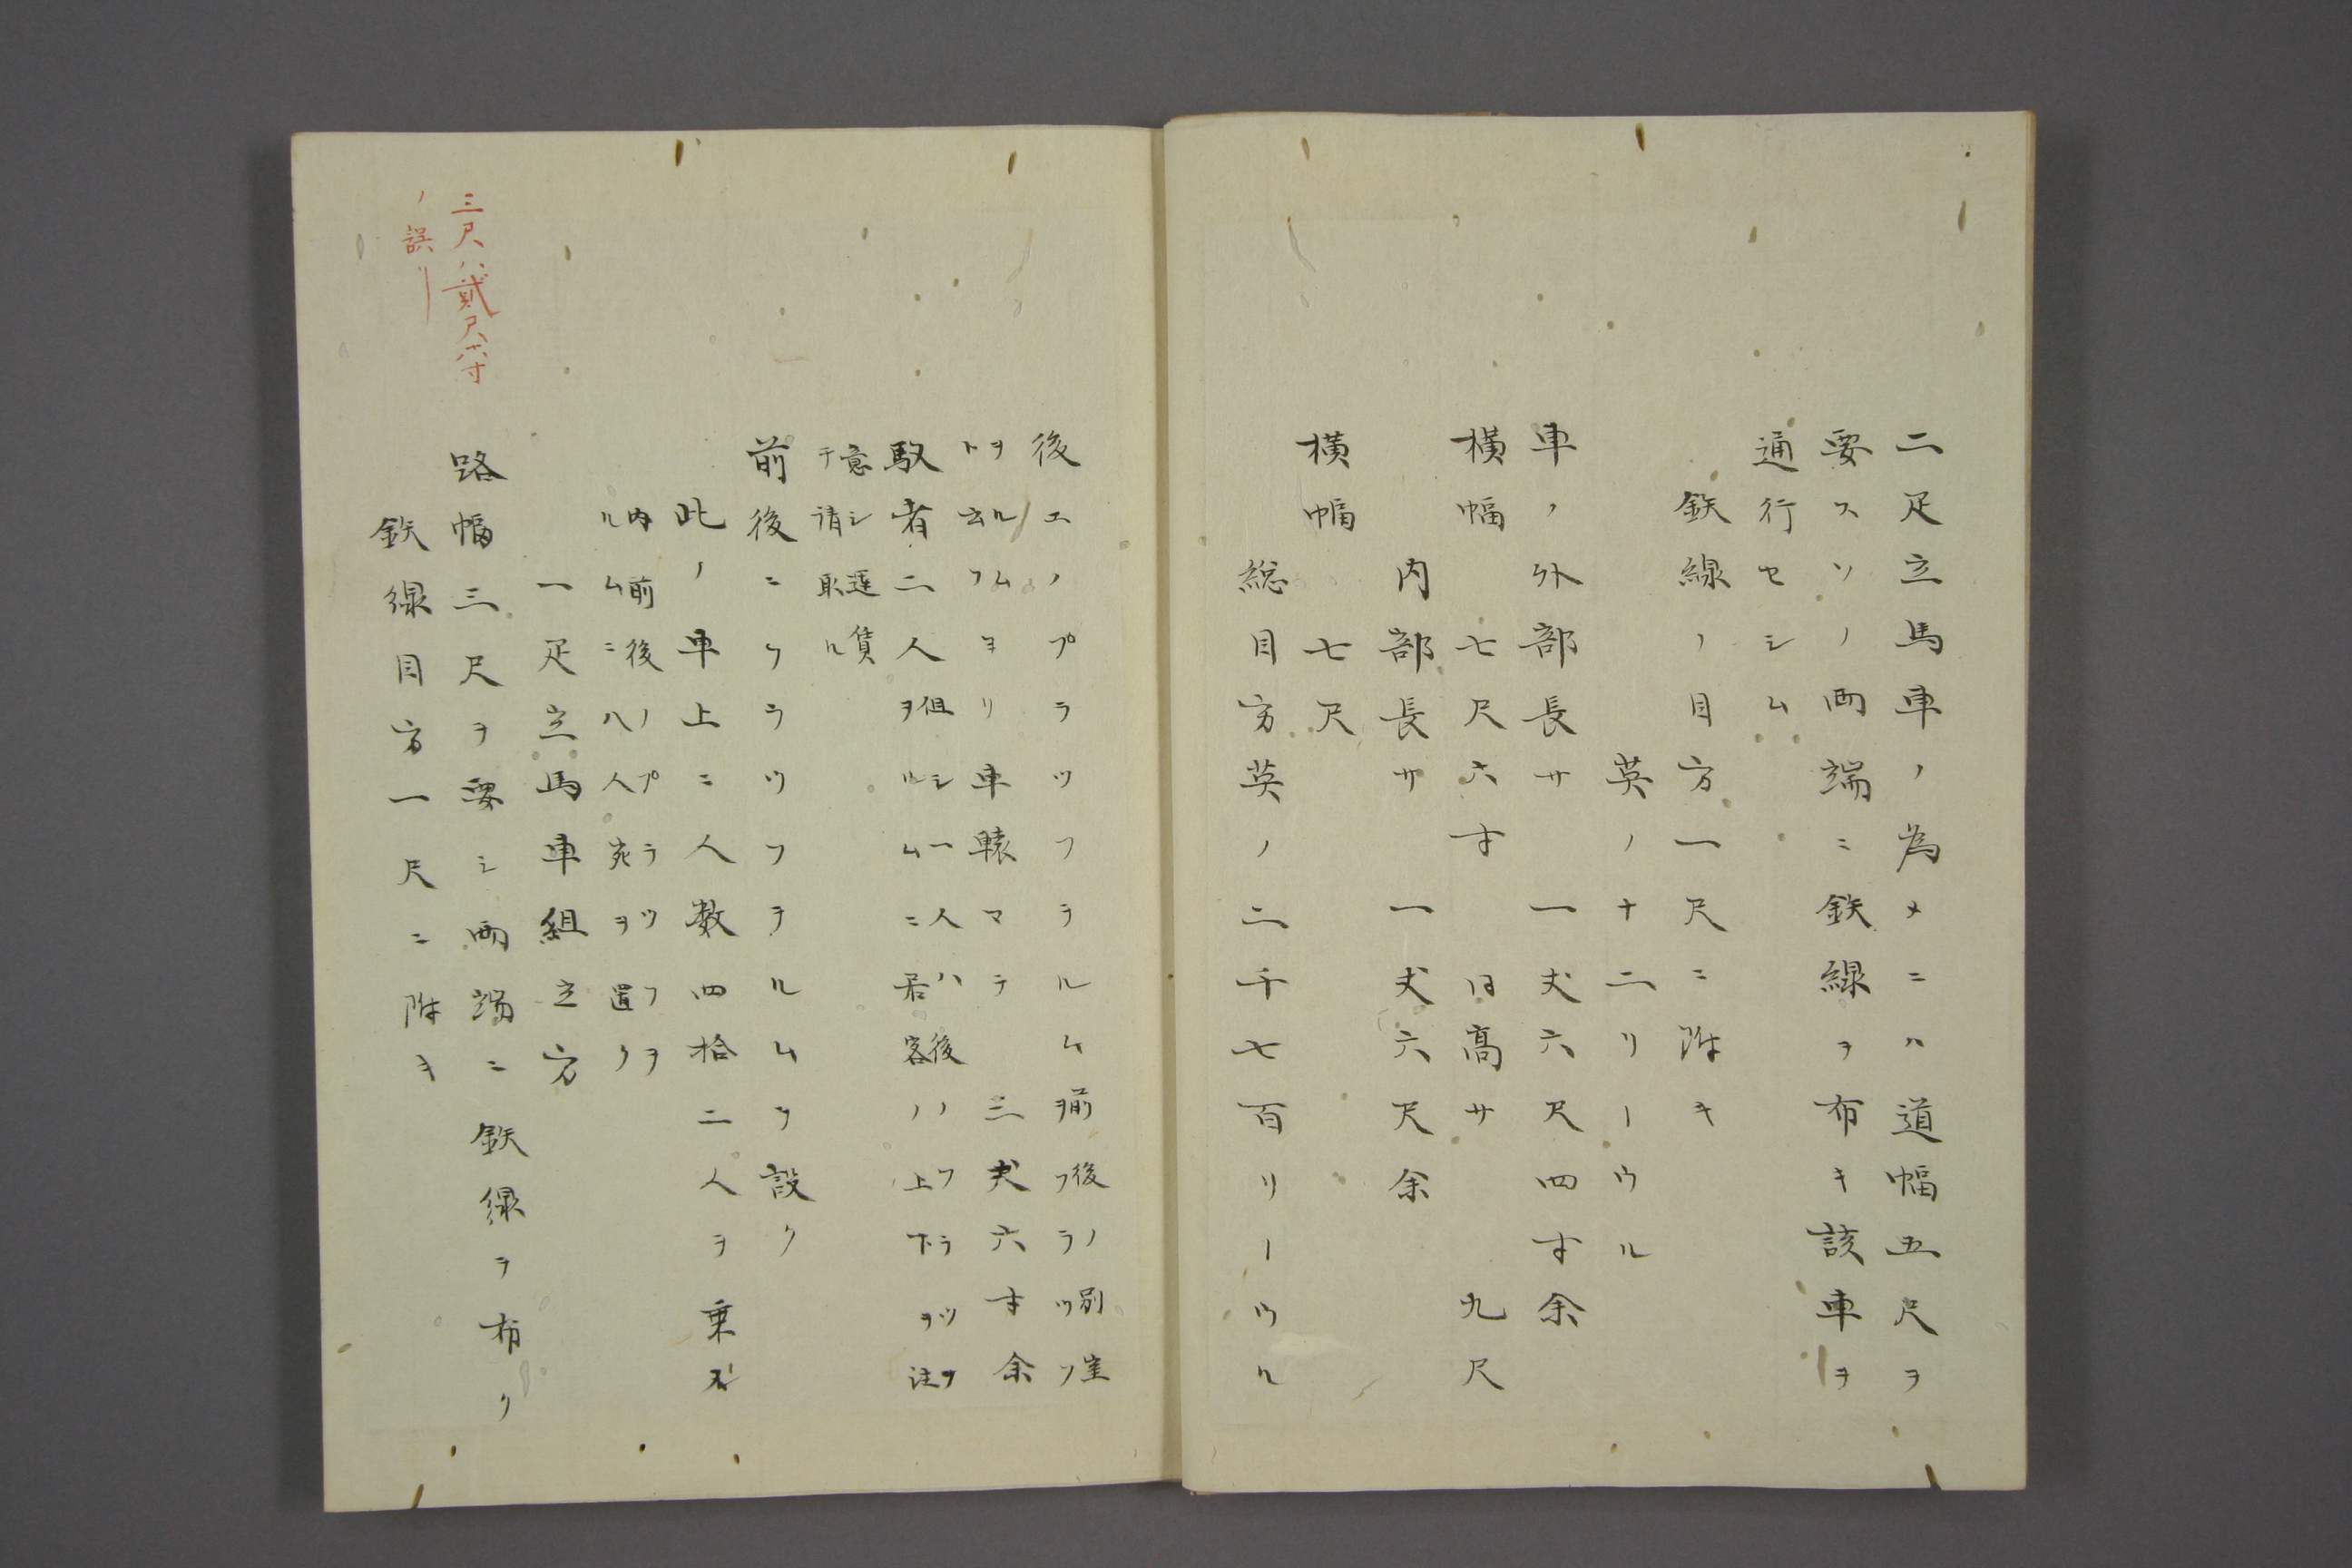 二疋立馬車ノ為メニハ道幅五尺ヲ
要スソノ両端ニ鉄線ヲ布キ該車ヲ
通行セシム
鉄線ノ目方一尺ニ附キ
英ノ十二リーウル
車ノ外部長サ 一丈六尺四寸余
横幅 七尺六寸 同高サ 九尺
内部長サ 一丈六尺余
横幅 七尺
総目方英ノ二千七百リーウル
後エノプラツフヲルム前後ノ別室
ヲフラツフ
ヲルム
ト云フヨリ車轅マテ 三丈六寸余
馭者二人但シ一人ハ後ノフラツフ
ヲルムニ居客ノ上下ヲ注
意シ運賃
テ請取ル
前後ニフラツフヲルムヲ設ク
此ノ車上ニ人数四拾二人ヲ乗ス
内前後ノプラツフヲ
ルムニ八人宛ヲ置ク
一疋立馬車組立方
三尺ハ貳尺六寸
ノ誤
路幅三尺ヲ要シ両端ニ鉄線ヲ布ク
鉄線目方一尺ニ附キ